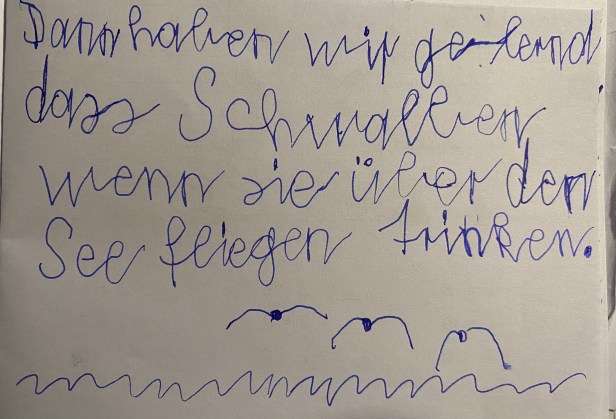 Dann haben wir gelernd
dass Schwalben
wenn sie über den
See fliegen trinken.